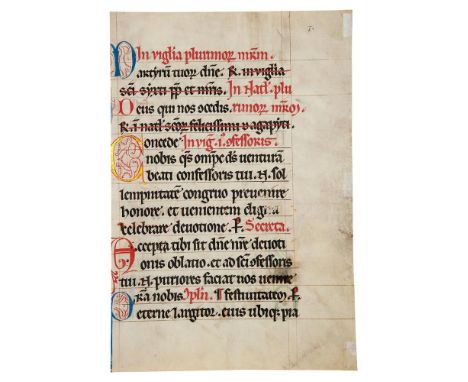 In vigilia plurimor mrm.
Martyrū tuor dñe. R. in vigilia
sci syxti pp et mris. In Natl. plu
Deus qui nos ꝯcedis. rimor mror
R. i natl scor felicissimi ⁊ agapyti.
Concede In vig. i. ꝯfessoris.
nobis qs omps ds venturā
beati confessoris tui. N. sol
lempnitatē congruo prevenire
honore. et venientem digna
celebrare devotione. P. Secreta.
Accepta tibi sit dñe nre devoti
onis oblatio. et ad sci ꝯfessoris
tui. N. puriores faciat nos venire
Ora nobis. festivitatem. P.
eterne largitor. eius ubiqꝫ pia